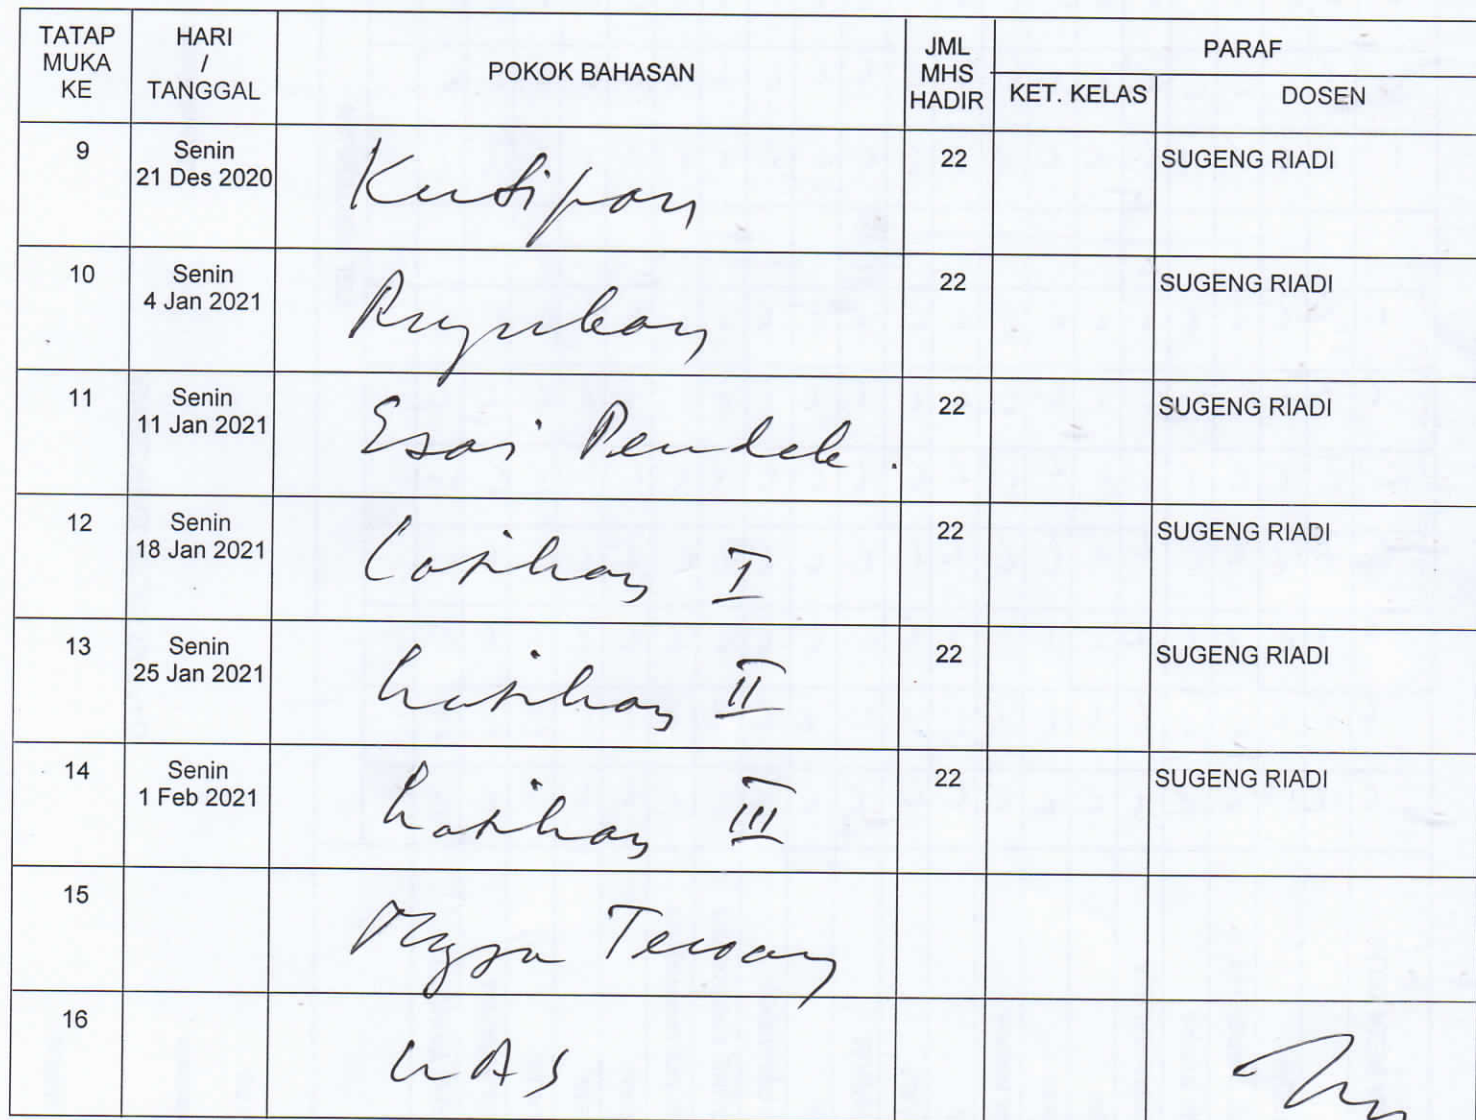 TATAP MUKA KE
HARI / TANGGAL
POKOK BAHASAN
JML MHS HADIR
PARAF
KET. KELAS
DOSEN
9 Senin 21 Des 2020 Kutipan 22 SUGENG RIADI
10 Senin 4 Jan 2021 Rujukan 22 SUGENG RIADI
11 Senin 11 Jan 2021 Esai Pendek. 22 SUGENG RIADI
12 Senin 18 Jan 2021 Latihan I 22 SUGENG RIADI
13 Senin 25 Jan 2021 Latihan II 22 SUGENG RIADI
14 Senin 1 Feb 2021 Latihan III 22 SUGENG RIADI
15 Tenang
16 UAS